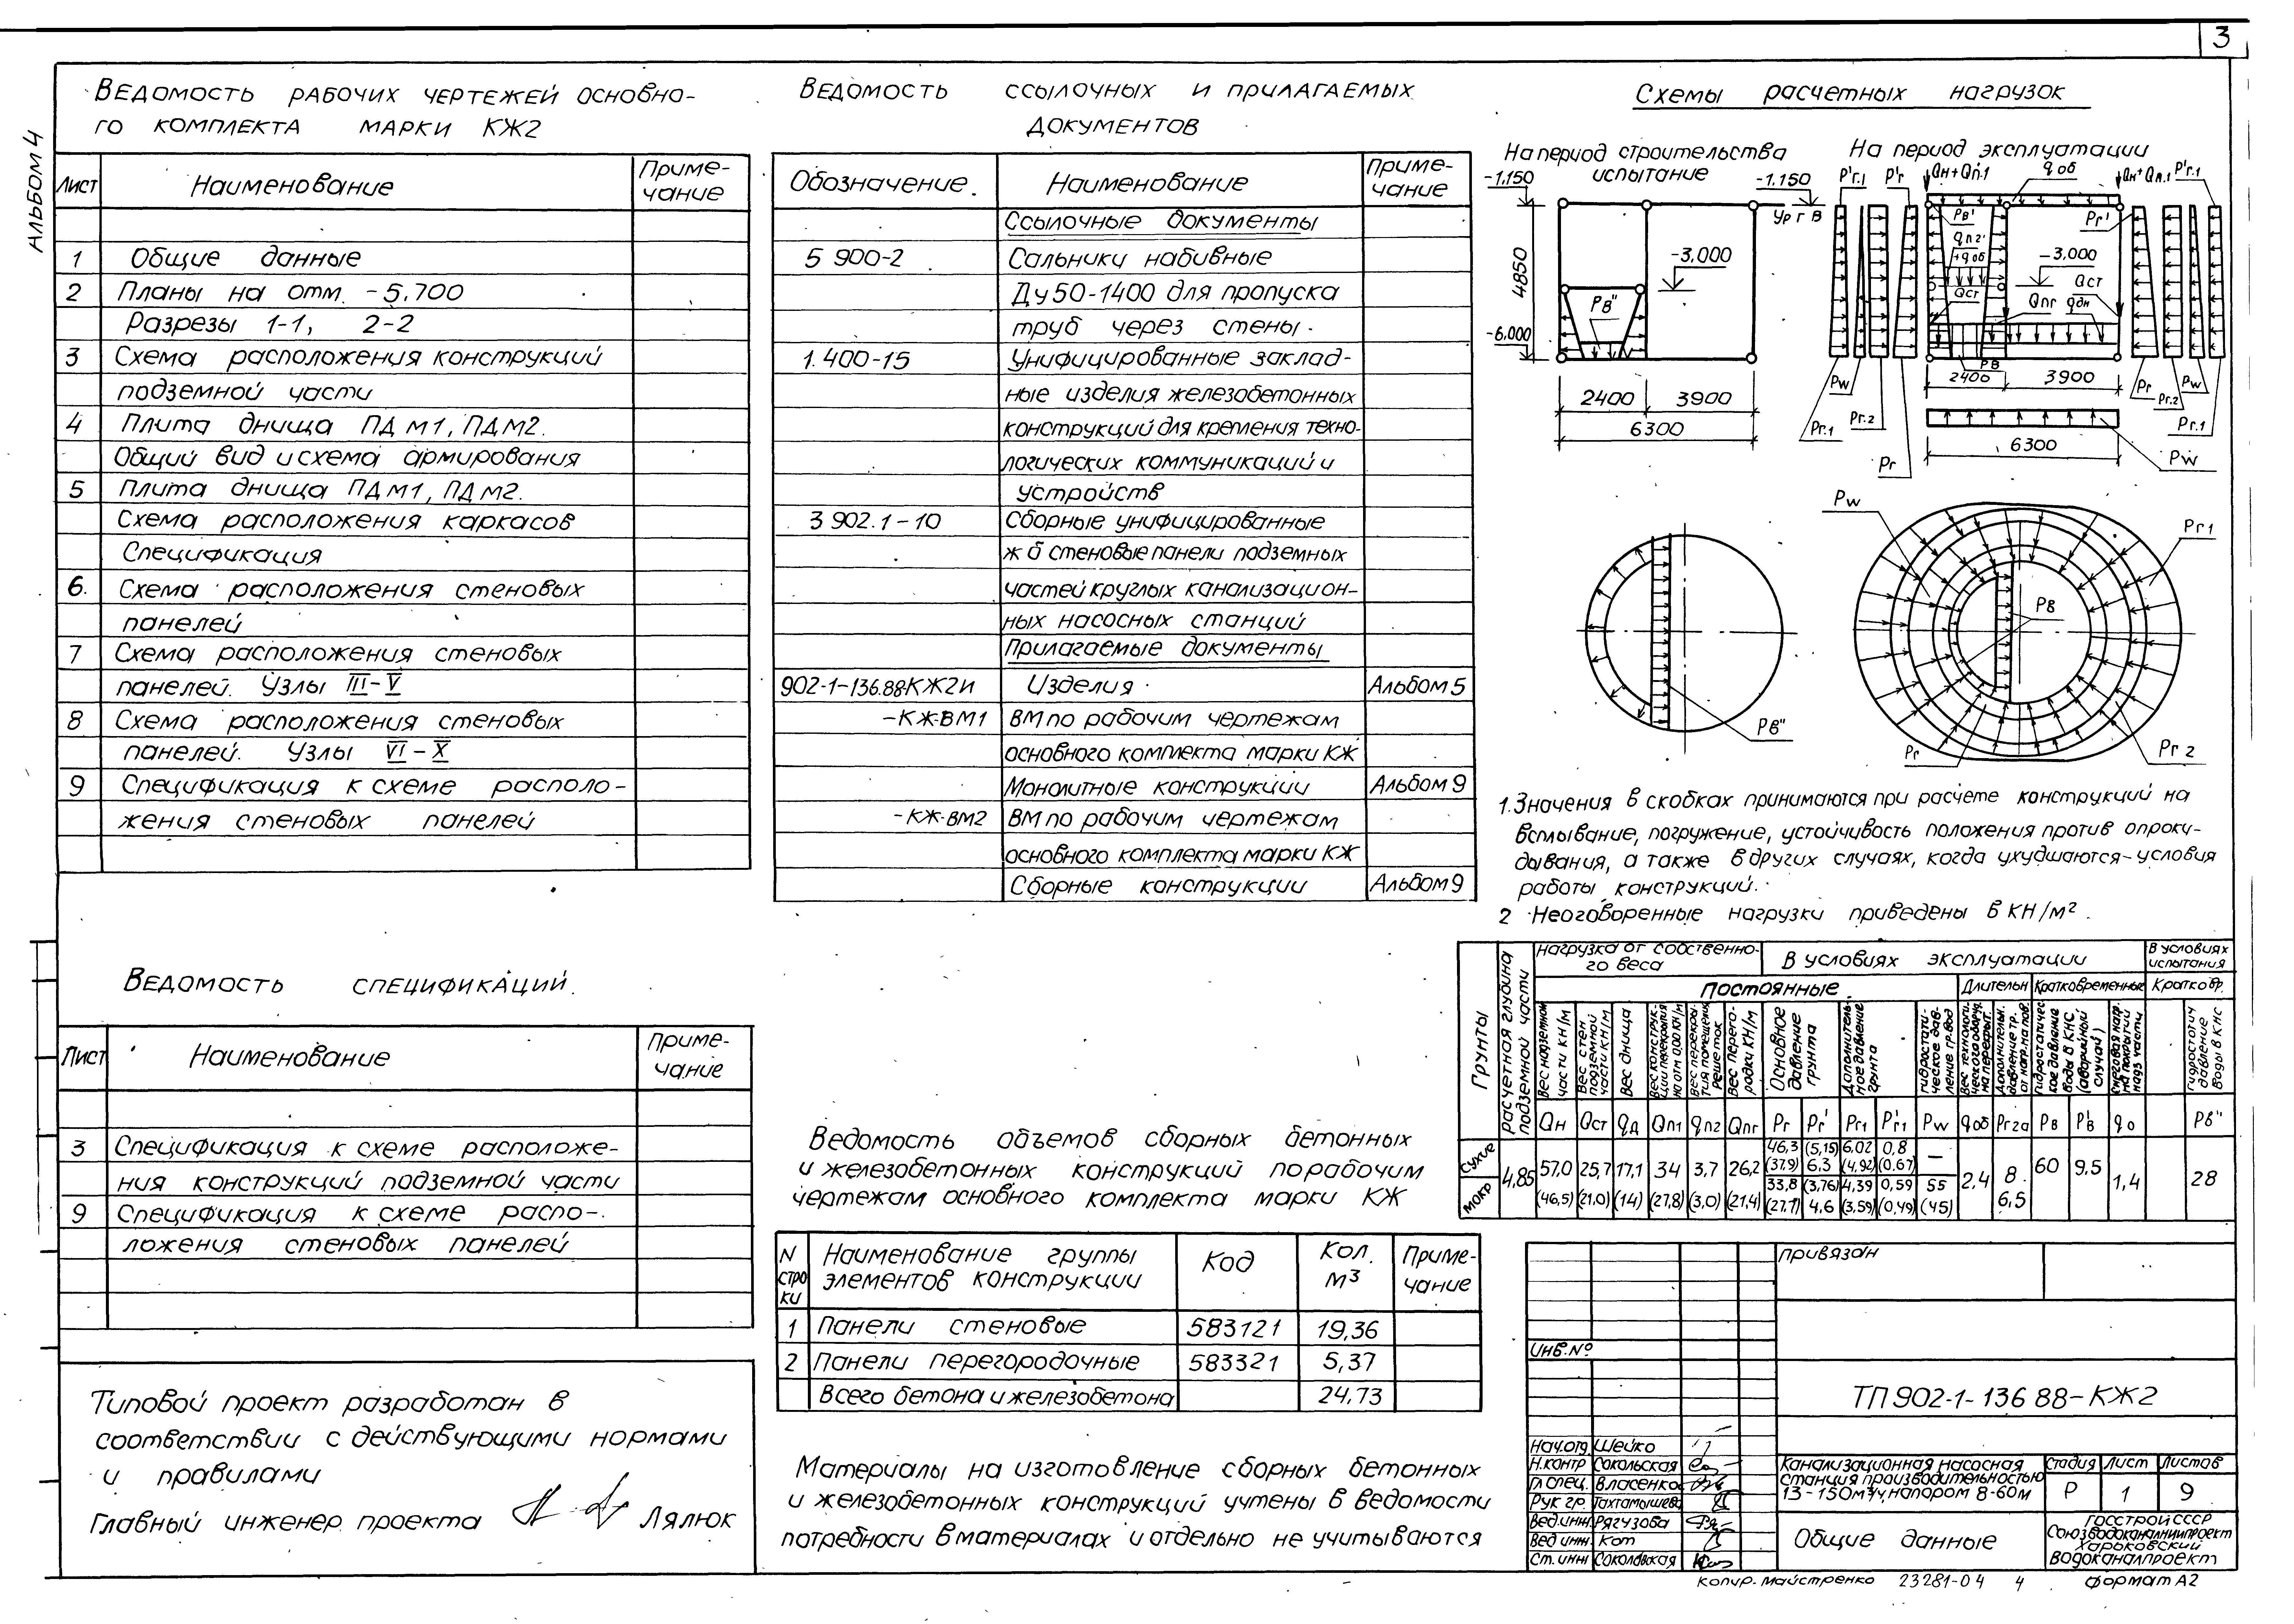 3
Альбом 4
Ведомость рабочих чертежей основно-
го комплекта марки КЖ2
Лист Наименование Приме-
чание
1 Общие данные
2 Планы на отм. -5.700
Разрезы 1-1, 2-2
3 Схема расположения конструкций
подземной части
4 Плита днища ПДм1, ПДм2.
Общий вид и схема армирования
5 Плита днища ПДм1, ПДм2.
Схема расположения каркасов
Спецификация
6. Схема расположения стеновых
панелей
7 Схема расположения стеновых
панелей. Узлы III-V
8 Схема расположения стеновых
панелей. Узлы VI-X
9 Спецификация к схеме располо-
жения стеновых панелей
Ведомость спецификаций.
Лист Наименование Приме-
чание
3 Спецификация к схеме расположе-
ния конструкций подземной части
9 Спецификация к схеме распо-
ложения стеновых панелей
Типовой проект разработан в
соответствии с действующими нормами
и правилами
Главный инженер проекта Лялюк
Ведомость ссылочных и прилагаемых
документов
Обозначение. Наименование Приме-
чание
Ссылочные документы
5 900-2 Сальники набивные
Ду 50-1400 для пропуска
труб через стены.
1.400-15 Унифицированные заклад-
ные изделия железобетонных
конструкций для крепления техно-
логических коммуникаций и
устройств
3 902.1-10 Сборные унифицированные
ж б стеновые панели подземных
частей круглых канализацион-
ных насосных станций
Прилагаемые документы
902-1-136.88-КЖ2И Изделия Альбом 5
-КЖ-ВМ1 ВМ по рабочим чертежам
основного комплекта марки КЖ
Монолитные конструкции Альбом 9
-КЖ-ВМ2 ВМ по рабочим чертежам
основного комплекта марки КЖ
Сборные конструкции Альбом 9
Ведомость объемов сборных бетонных
и железобетонных конструкций по рабочим
чертежам основного комплекта марки КЖ
N
стро
ки
Наименование группы
элементов конструкции
Код
Кол.
м³
Приме-
чание
1 Панели стеновые 583121 19,36
2 Панели перегородочные 583321 5,37
Всего бетона и железобетона 24,73
Материалы на изготовление сборных бетонных
и железобетонных конструкций учтены в ведомости
потребности в материалах и отдельно не учитываются
Схемы расчетных нагрузок
На период строительства
испытание
-1.150 -1.150
Ур г в
4850
-3.000
Рв"
-6.000
2400 3900
6300
На период эксплуатации
P'г.1 P'г Qн+Qп.1 qоб Qн+Qп.1 P'г.1
Рв' Рг'
qп2'
+qоб
-3.000
Qст Qст
Qпг qдн
Рв
2400 3900
Pw Рг Рг.2 Pw
Рг.1 Рг.2 Рг.1
6300
Рг Pw
Рв"
Pw Рг1
Рв
Рг Рг2
1. Значения в скобках принимаются при расчете конструкций на
всплывание, погружение, устойчивость положения против опроки-
дывания, а также в других случаях, когда ухудшаются условия
работы конструкций.
2 Неоговоренные нагрузки приведены в кН/м².
Грунты
Расчетная глубина
подземной части
Нагрузка от собственно-
го веса
В условиях эксплуатации
В условиях
испытания
Постоянные Длительн Кратковременные Кратковр.
Вес надземной
части кН/м
Вес стен
подземной
части кН/м
Вес днища
Вес конструк-
ции перекрытия
на отм 0,00 кН/м
Вес перекры-
тия помещения
решеток
Вес перего-
родки кН/м
Основное
давление
грунта
Дополнитель-
ное давление
грунта
Гидростати-
ческое дав-
ление гр. вод
Гидростатичес
кое давление
воды в КНС
(аварийный
случай)
Гидростатич
давление
воды в КНС
Qн Qст qд Qп1 qп2 Qпг Рг Рг' Рг1 P'г1 Pw qоб Рг2а Рв P'в qо Рв"
Сухие 4,85 57,0 25,7 17,1 34 3,7 26,2 46,3 (5,15) 6,02 0,8 —
(37,9) 6,3 (4,92) (0,67)
2,4 8 60 9,5 1,4 28
Мокр (46,5) (21,0) (14) (27,8) (3,0) (21,4) 33,8 (3,76) 4,39 0,59 55
(27,7) 4,6 (3,59) (0,49) (45) 6,5
Привязан
Инв.№
ТП 902-1-136 88-КЖ2
Нач.отд. Шейко
Н.контр Сокольская
Гл спец. Власенко
Рук гр. Тахтамышева
Вед.инж. Рягузова
Вед инж. Кот
Ст. инж Соколовская
Канализационная насосная
станция производительностью
13-150м³/ч, напором 8-60м
Стадия Лист Листов
Р 1 9
Общие данные
Госстрой СССР
Союзводоканалниипроект
Харьковский
Водоканалпроект
Копир. Майстренко 23281-04 4 Формат А2